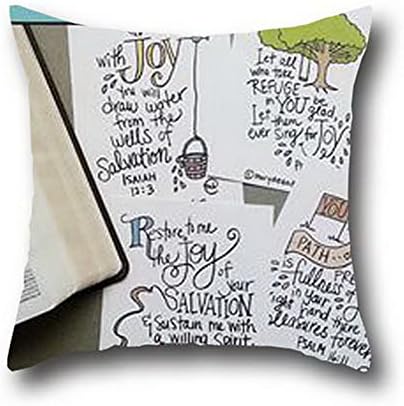 with Joy
you will
draw water
from the
wells of
Salvation
ISAIAH
12:3
Let all
who take
REFUGE
in YOU be
glad.
Let them
ever sing for
JOY
Restore to me
the Joy
of your
SALVATION
& Sustain me with
a willing Spirit
YOU
PATH
is fullness
in your
right hand there
pleasures forever
PSALM 16:11